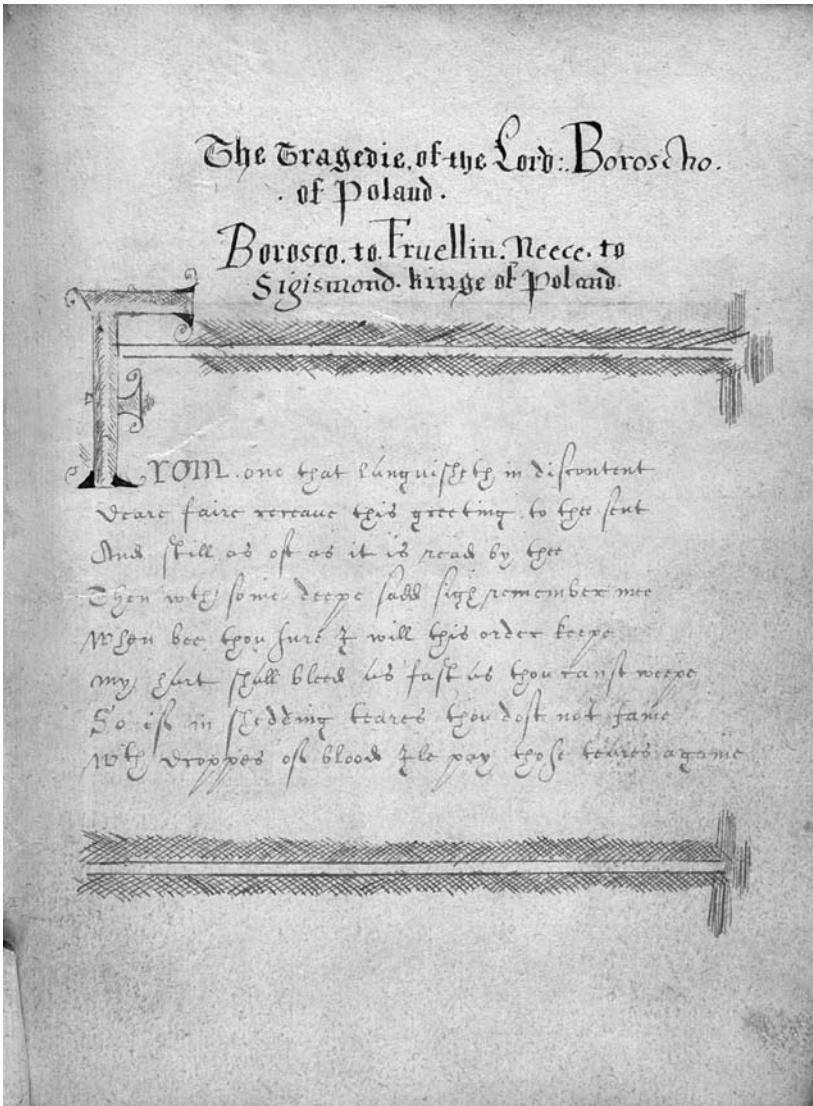 The Tragedie. of the Lord: Boroscho.
. of Poland.
Borosco. to. Fruellin: Neece. to
Sigismond. kinge of Poland.
From. one that languisheth in discontent
Deare faire receaue this greeting to thee sent
And still as oft as it is read by thee
Then wth some deepe sadd sigh remember mee
When bee thou sure I will this order keepe
my hart shall bleed as fast as thou canst weepe
So if in shedding teares thou dost not faine
Wth droppes of blood Ile pay those teares againe